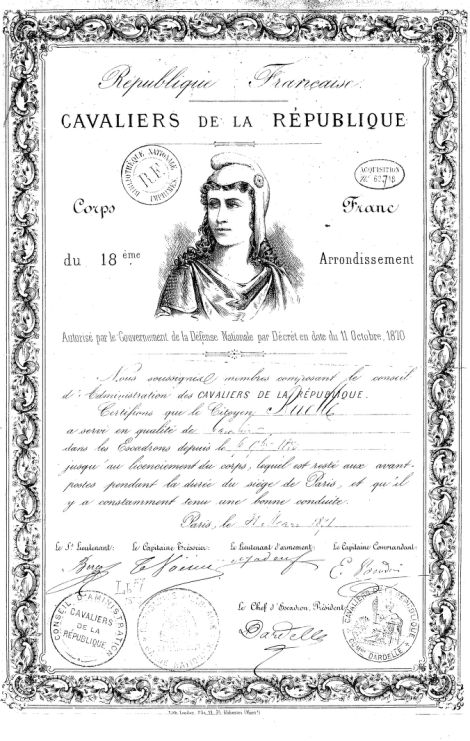 République Française.
CAVALIERS DE LA RÉPUBLIQUE
BIBLIOTHÈQUE NATIONALE
R.F.
ACQUISITION
Corps Franc
du 18 ème Arrondissement
Autorisé par le Gouvernement de la Défense Nationale par Décrêt en date du 11 Octobre, 1870
Nous soussignés membres composant le conseil
d'Administration des CAVALIERS DE LA RÉPUBLIQUE.
Certifions que le Citoyen
a servi en qualité de
dans les Escadrons depuis le
jusqu'au licenciement du corps, lequel est resté aux avant-
postes pendant la durée du siège de Paris, et qu'il
y a constamment tenu une bonne conduite.
Paris, le Mars 1871
le Sr. Lieutenant: le Capitaine Trésorier: le lieutenant d'armement: le Capitaine Commandant:
CONSEIL D'ADMINISTRATION
CAVALIERS
DE LA
RÉPUBLIQUE
le Chef d'Escadron, Président:
Dardelle
CAVALIERS DE LA RÉPUBLIQUE
DARDELLE